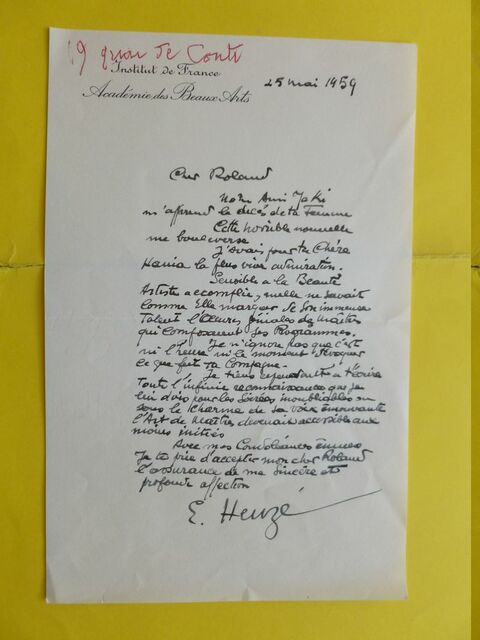 19 quai de Conti
Institut de France
Académie des Beaux Arts
25 mai 1959
Cher Roland
Notre Ami Jaki
m'apprend le décès de ta Femme
Cette horrible nouvelle
me bouleverse
J'avais pour ta Chère
Hania la plus vive admiration.
Sensible à la Beauté
Artiste accomplie, nulle ne savait
comme Elle marquer de Son immense
Talent l'Œuvre géniale des Maîtres
qui composaient ses Programmes.
Je n'ignore pas que c'est
ni l'heure ni le moment d'évoquer
ce que fut ta Compagne.
Je tiens cependant à t'écrire
Toute l'infinie reconnaissance que je
lui dois pour les Soirées inoubliables où
sous le Charme de sa voix émouvante
l'Art des Maîtres devenait accessible aux
moins initiés
Avec mes Condoléances émues
Je te prie d'accepter mon cher Roland
l'assurance de ma sincère et
profonde affection
E. Heuzé